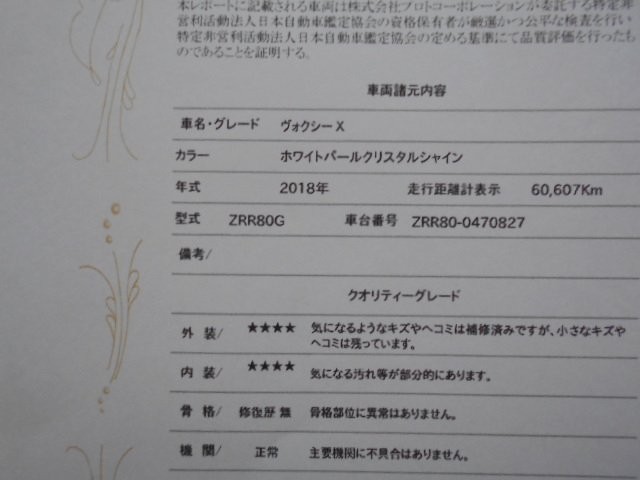 本レポートに記載される車両は株式会社プロトコーポレーションが委託する特定非
営利活動法人日本自動車鑑定協会の資格保有者が厳選かつ公平な検査を行い
特定非営利活動法人日本自動車鑑定協会の定める基準にて品質評価を行ったも
のであることを証明する。
車両諸元内容
車名・グレード ヴォクシー X
カラー ホワイトパールクリスタルシャイン
年式 2018年 走行距離計表示 60,607Km
型式 ZRR80G 車台番号 ZRR80-0470827
備考/
クオリティーグレード
外 装/ ★★★★ 気になるようなキズやヘコミは補修済みですが、小さなキズや
ヘコミは残っています。
内 装/ ★★★★ 気になる汚れ等が部分的にあります。
骨 格/ 修復歴 無 骨格部位に異常はありません。
機 関/ 正常 主要機関に不具合はありません。